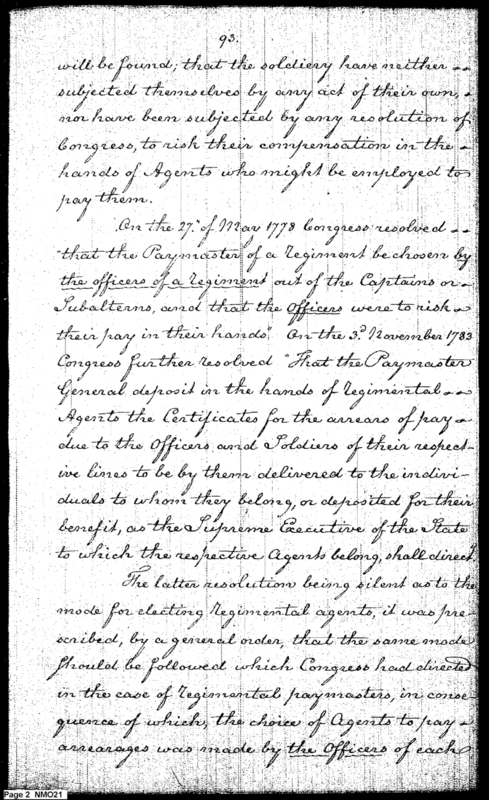 93.
will be found; that the soldiery have neither --
subjected themselves by any act of their own, -
nor have been subjected by any resolution of
Congress, to risk their compensation in the -
hands of Agents who might be employed to
pay them.
On the 27th of May 1778 Congress resolved --
"that the Paymaster of a Regiment be chosen by
the officers of a Regiment out of the Captains or
Subalterns, and that the Officers were to risk -
their pay in their hands" On the 3d November 1783
Congress further resolved "That the Paymaster
General deposit in the hands of Regimental --
Agents the Certificates for the arrears of pay -
due to the Officers and Soldiers of their respect-
ive lines to be by them delivered to the indivi-
duals to whom they belong, or deposited for their
benefit, as the Supreme Executive of the State
to which the respective Agents belong, shall direct."
The latter resolution being silent as to the
mode for electing Regimental agents, it was pre-
scribed, by a general order, that the same mode
should be followed which Congress had directed
in the case of regimental paymasters, in conse
quence of which, the choice of Agents to pay -
arrearages was made by the Officers of each
Page 2 NMO21